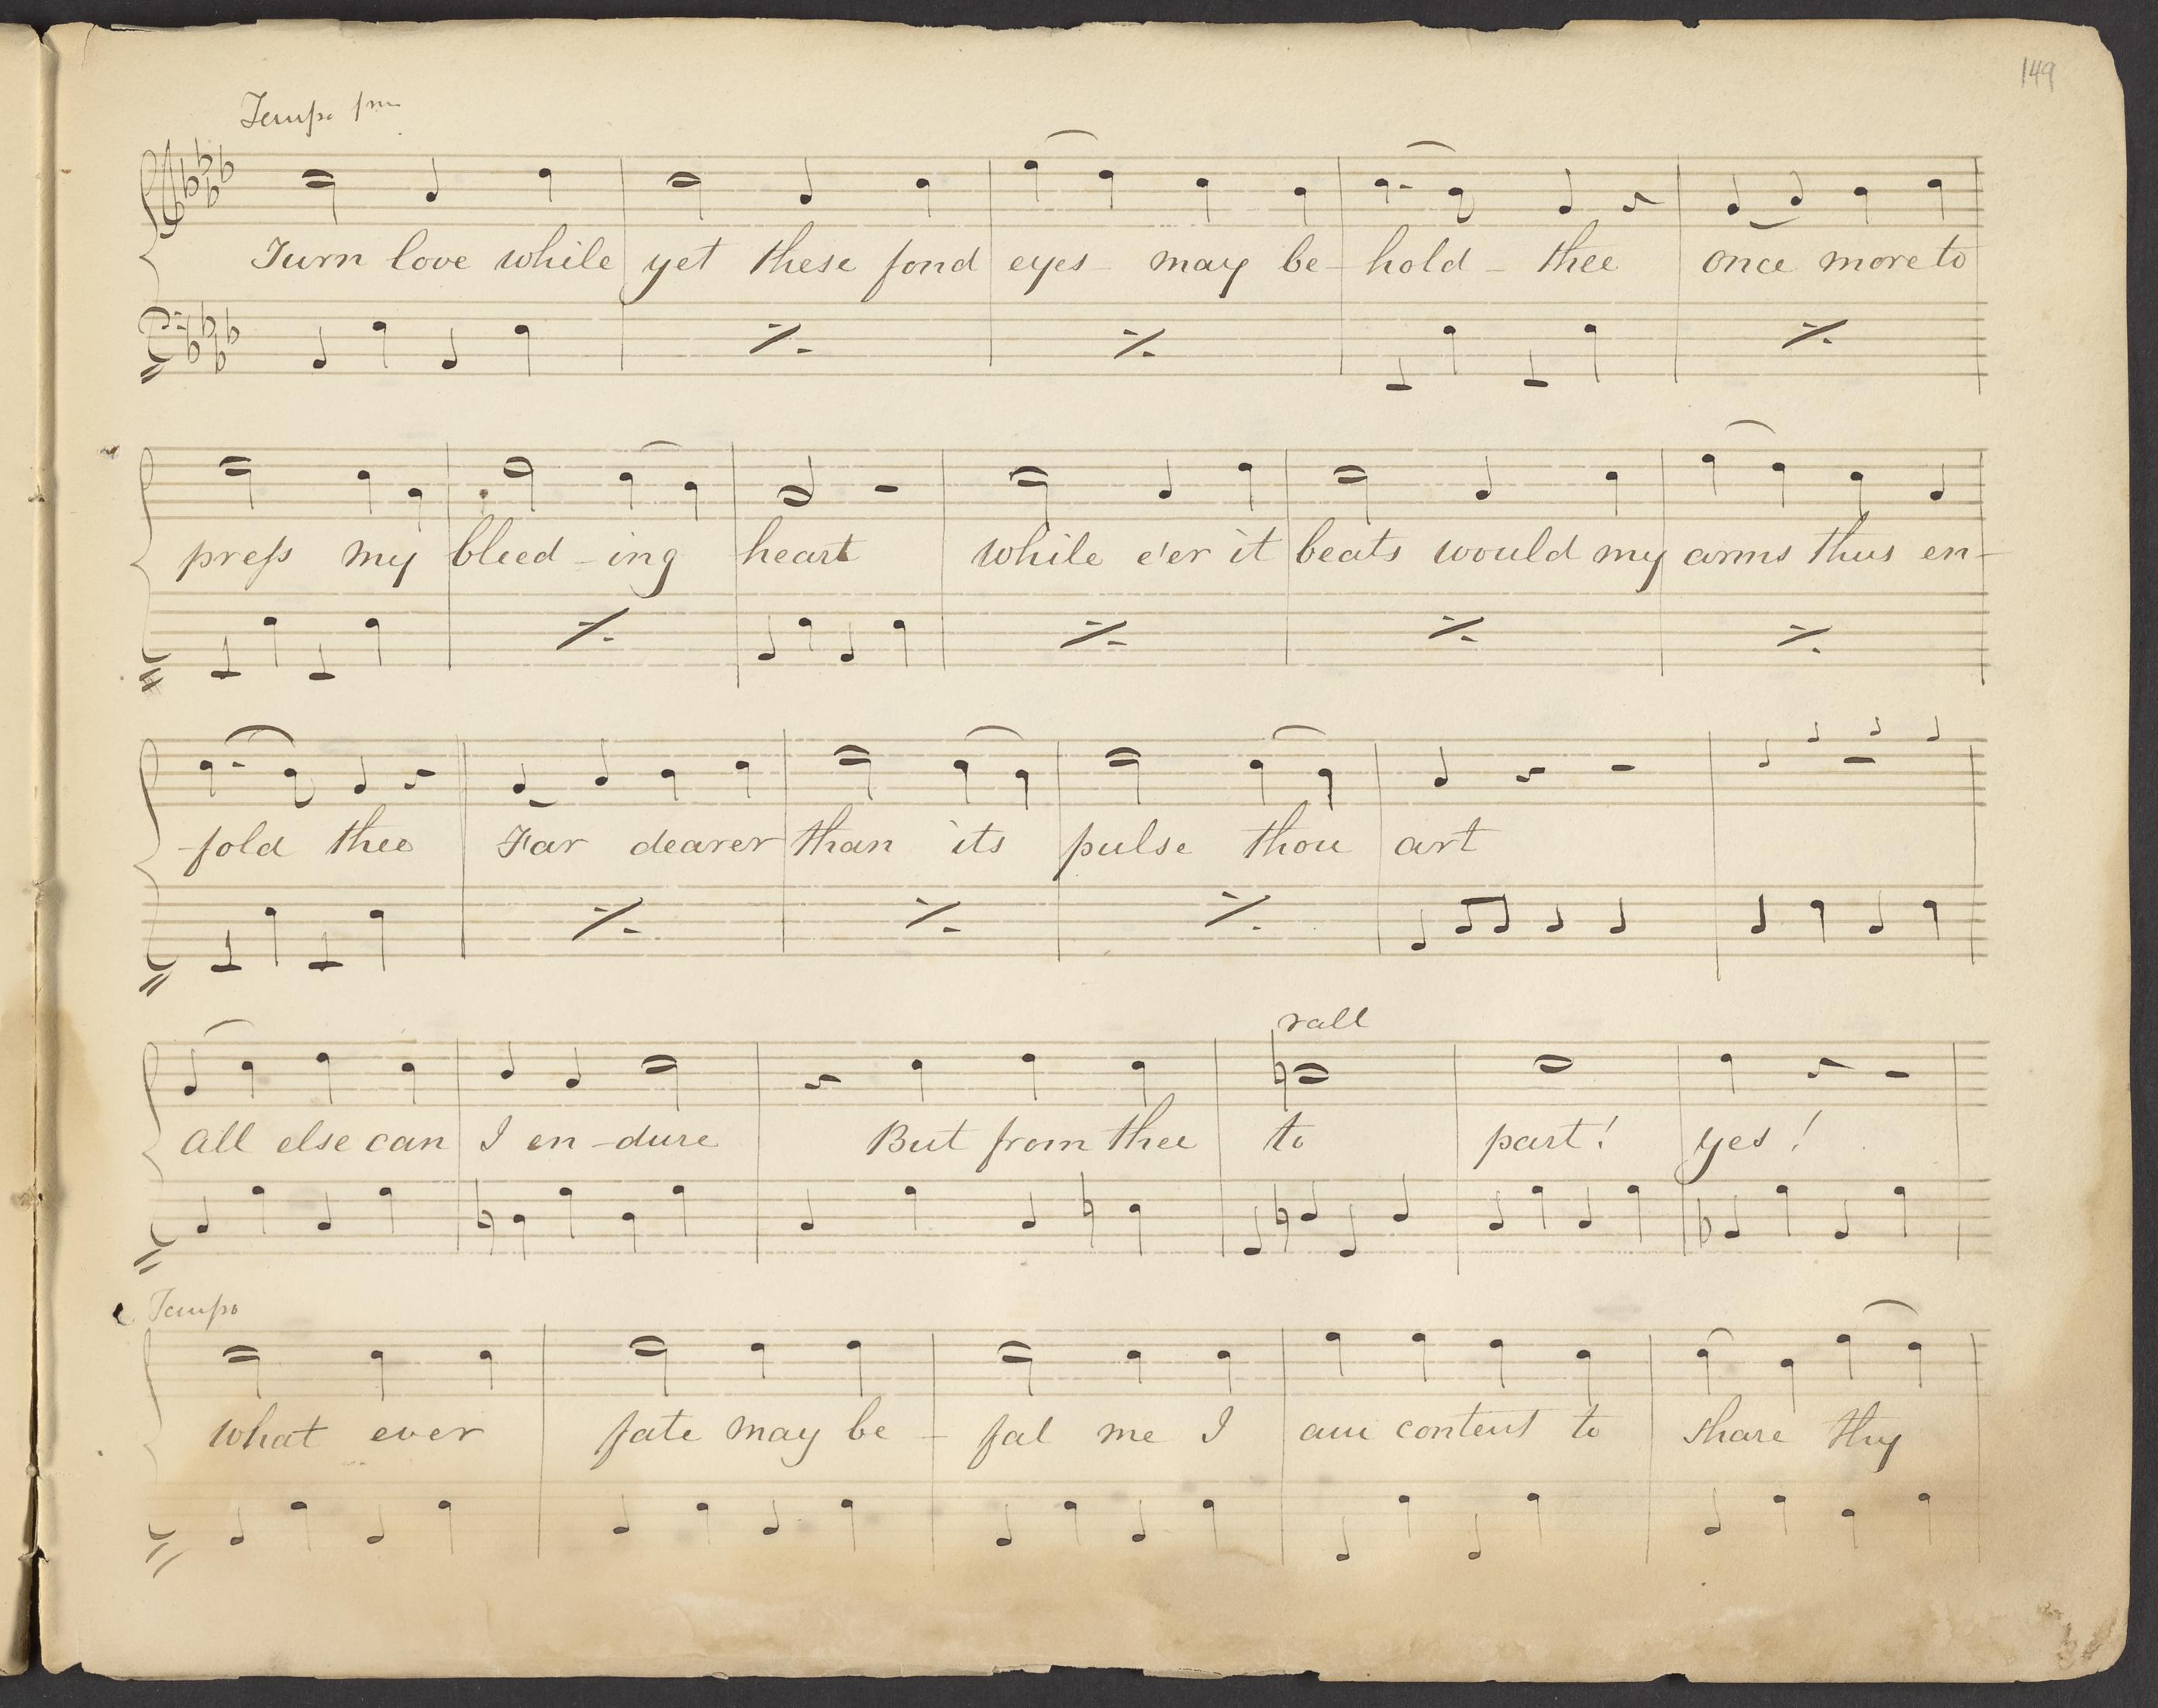 149
Tempo pmo
Turn love while yet these fond eyes - may be - hold - thee once more to
preſs my bleed - ing heart while e'er it beats would my arms thus en -
- fold thee Far dearer than its pulse thou art
rall
All else can I en - dure But from thee to part! yes!
Tempo
what ever fate may be - fal me I am content to share thy